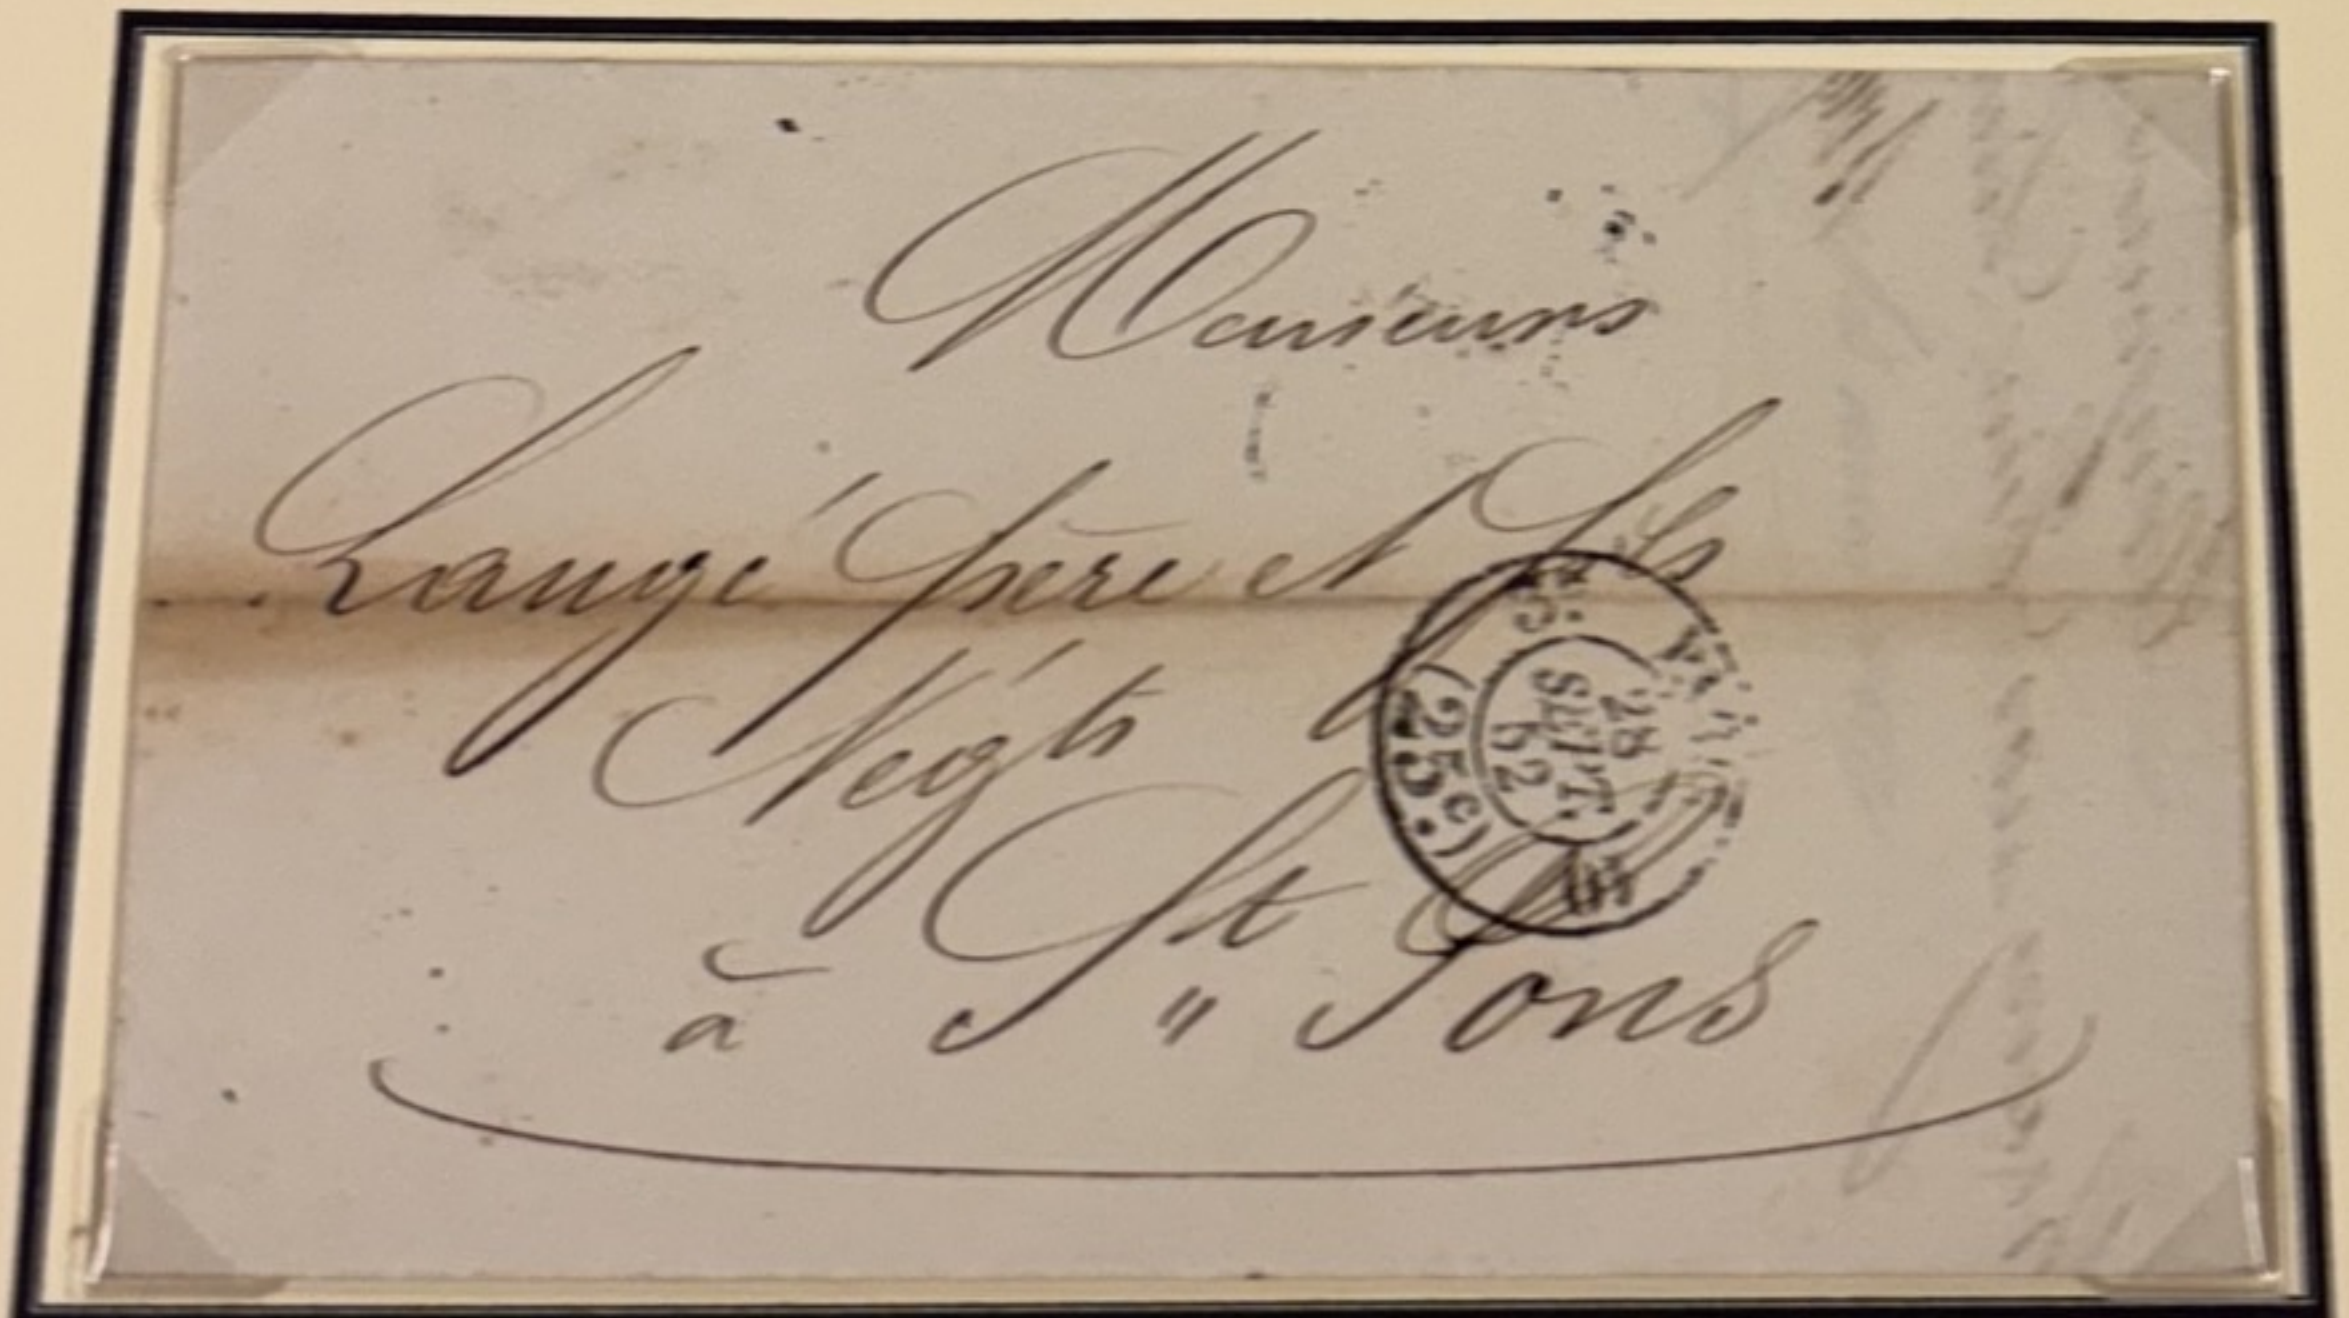 Messieurs
Laugé père et fils
Négts
à St " Pons
28
SEPT.
62
(25c)
25.